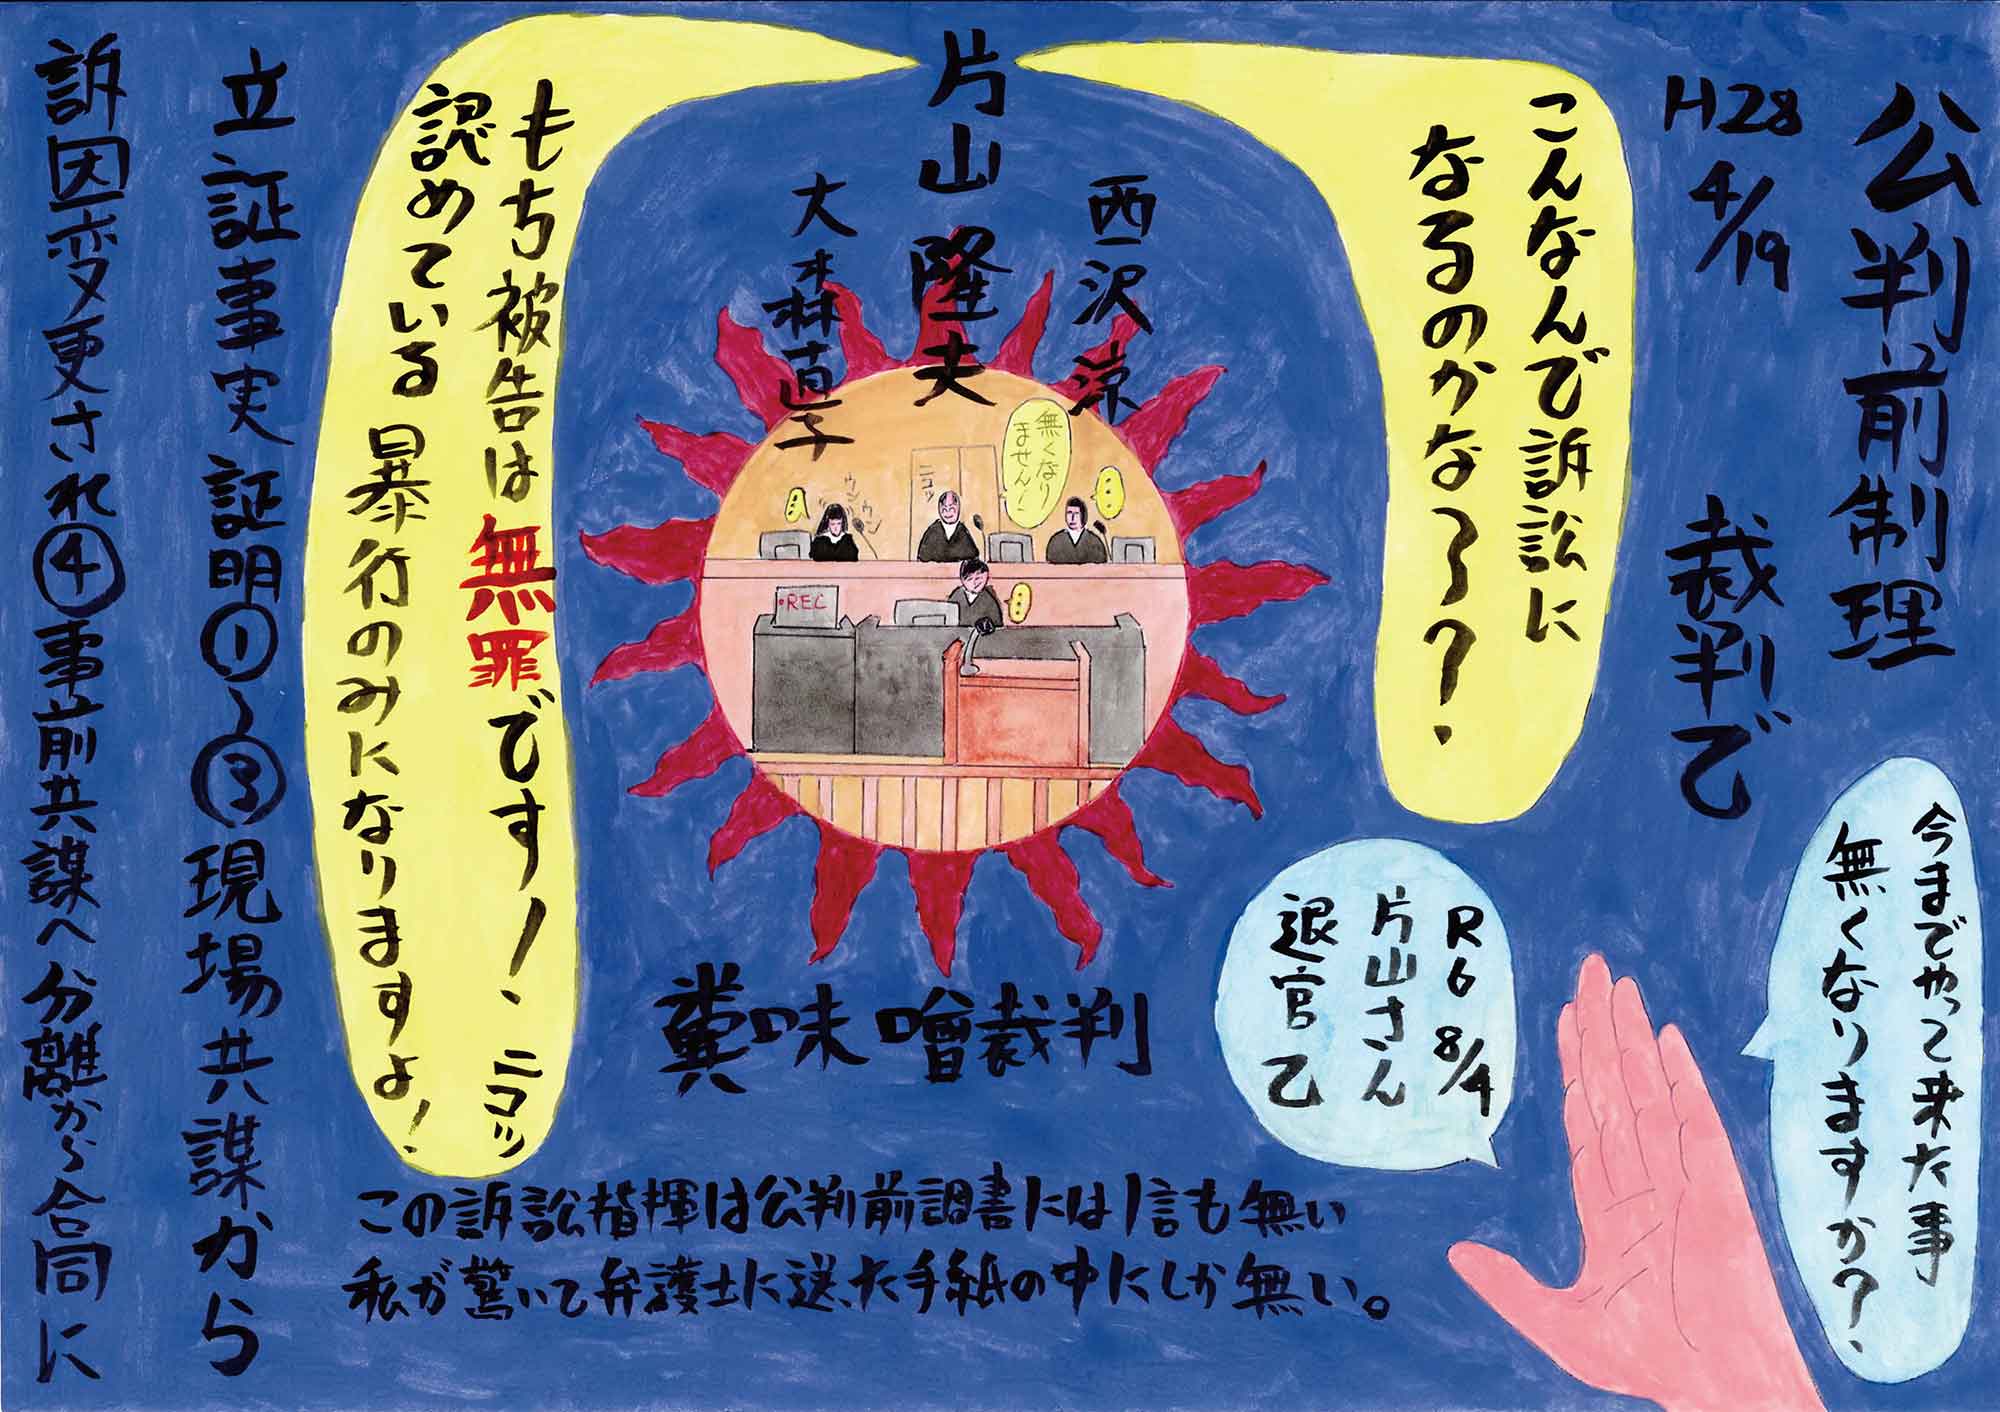 公判前制理
H28 4/19 裁判で
今までやって来た事
無くなりますか?
こんなんで訴訟に
なるのかな~?
西沢涼
片山隆夫
大森直子
無くなり
ません!
ニコッ
ウンウン
REC
もち被告は無罪です! ニコッ
認めている暴行のみになりますよ!
立証事実証明①~③現場共謀から
訴因変更され④事前共謀へ分離から合同に
糞味噌裁判
R6 8/4
片山さん
退官乙
この訴訟指揮は公判前調書には1言も無い
私が驚いて弁護士に送った手紙の中にしか無い。